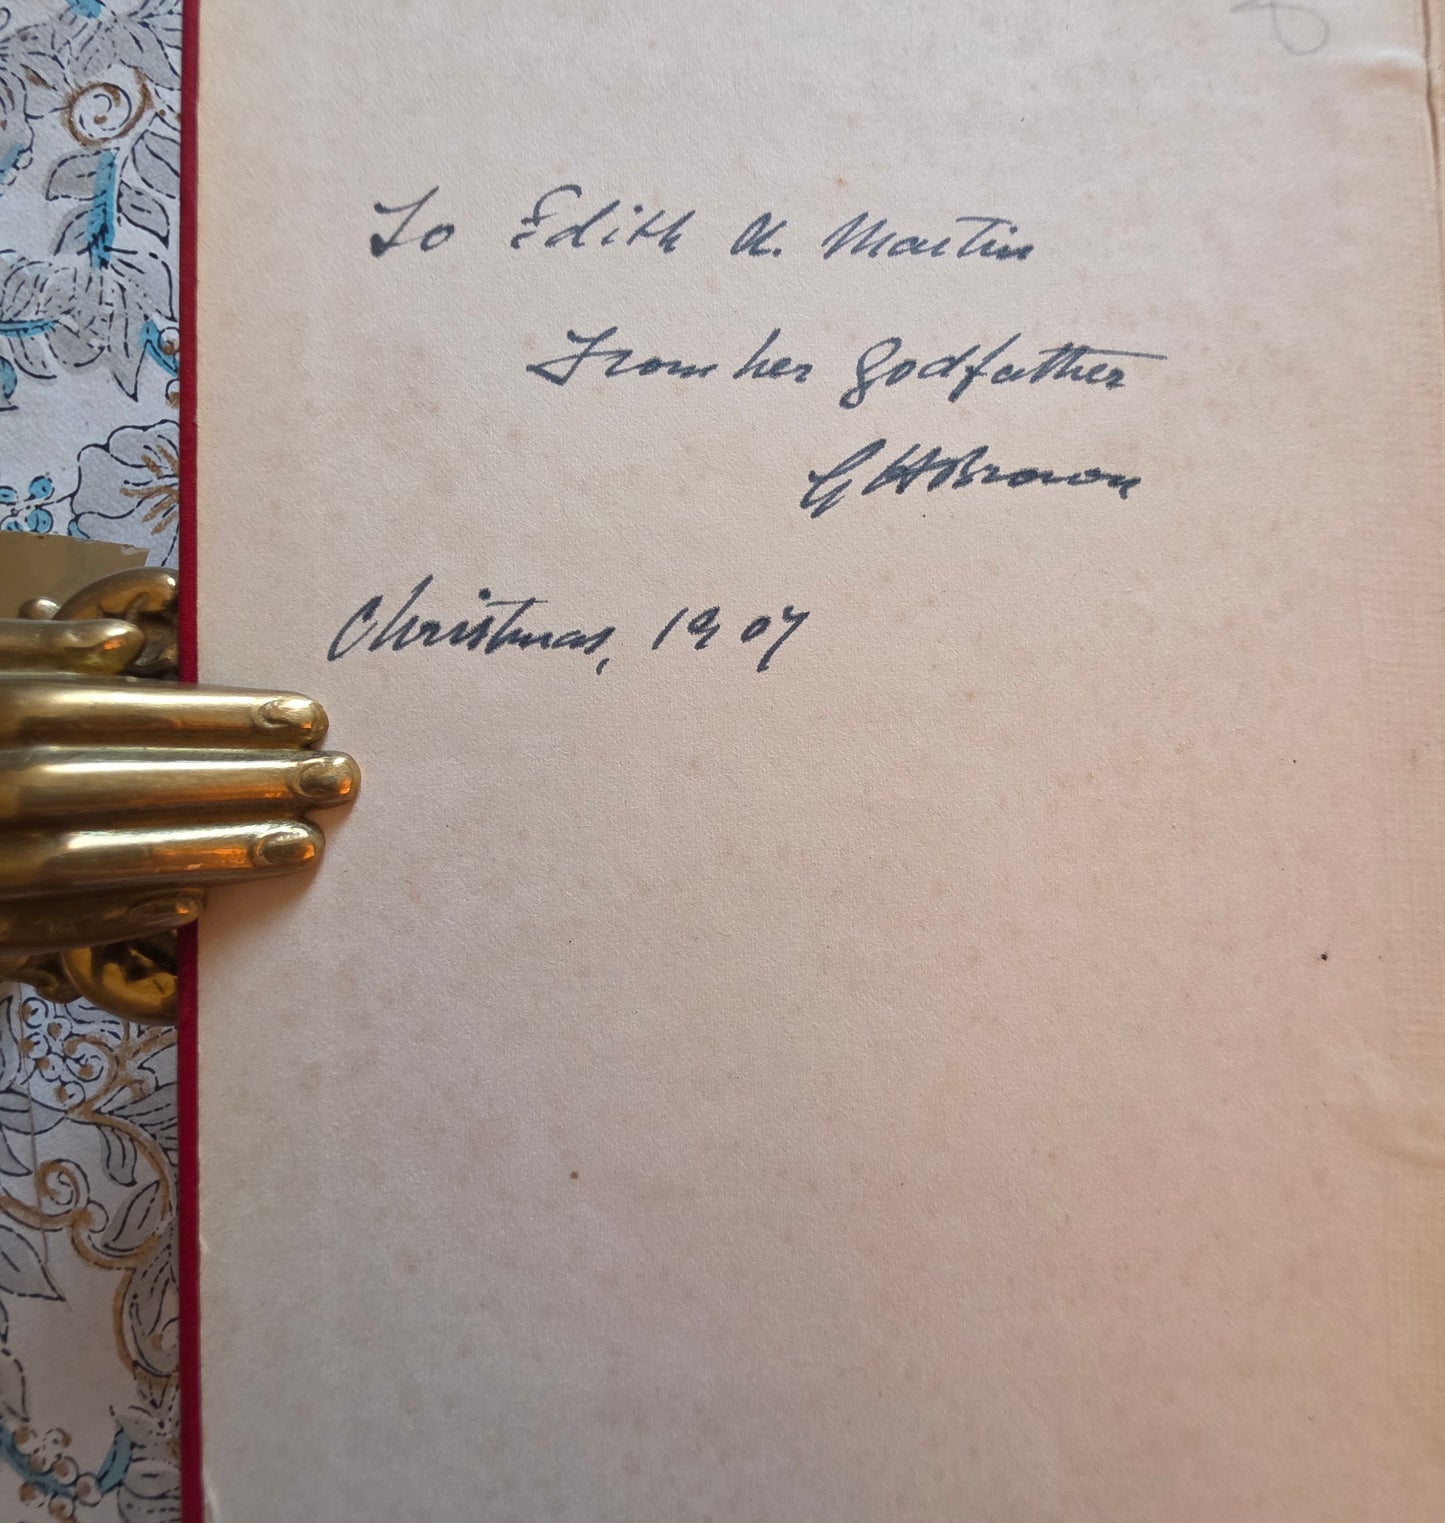 To Edith A. Martin
From her godfather
G H Brown
Christmas, 1907